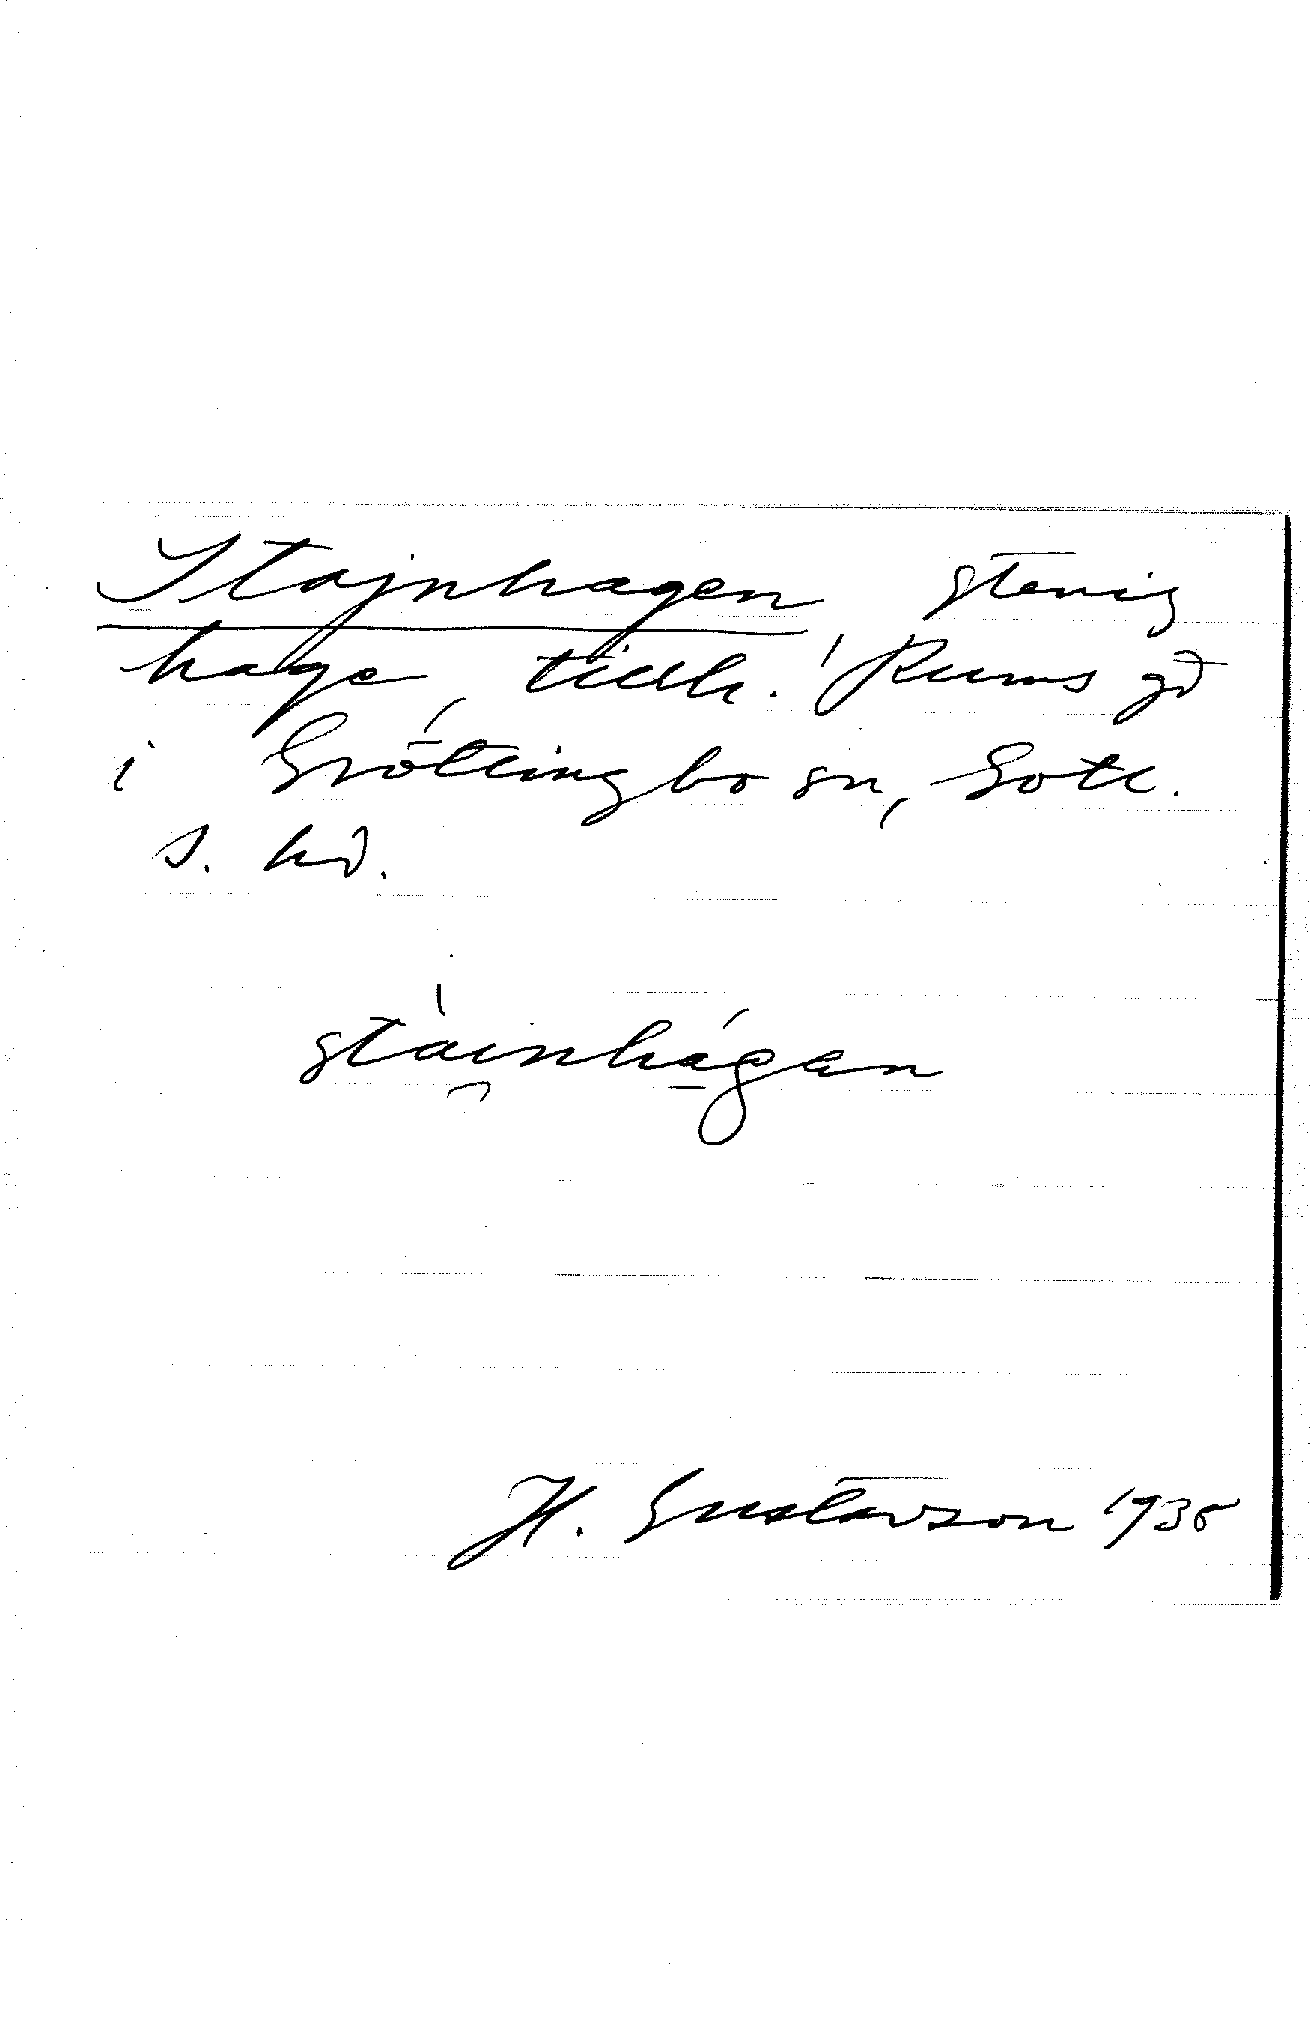 Stajnhagen stenig
hage, tillh. Rums gd
i Grötlingbo sn, Gotl.
s. hd.
stàinhágen
H. Gustavson 1938